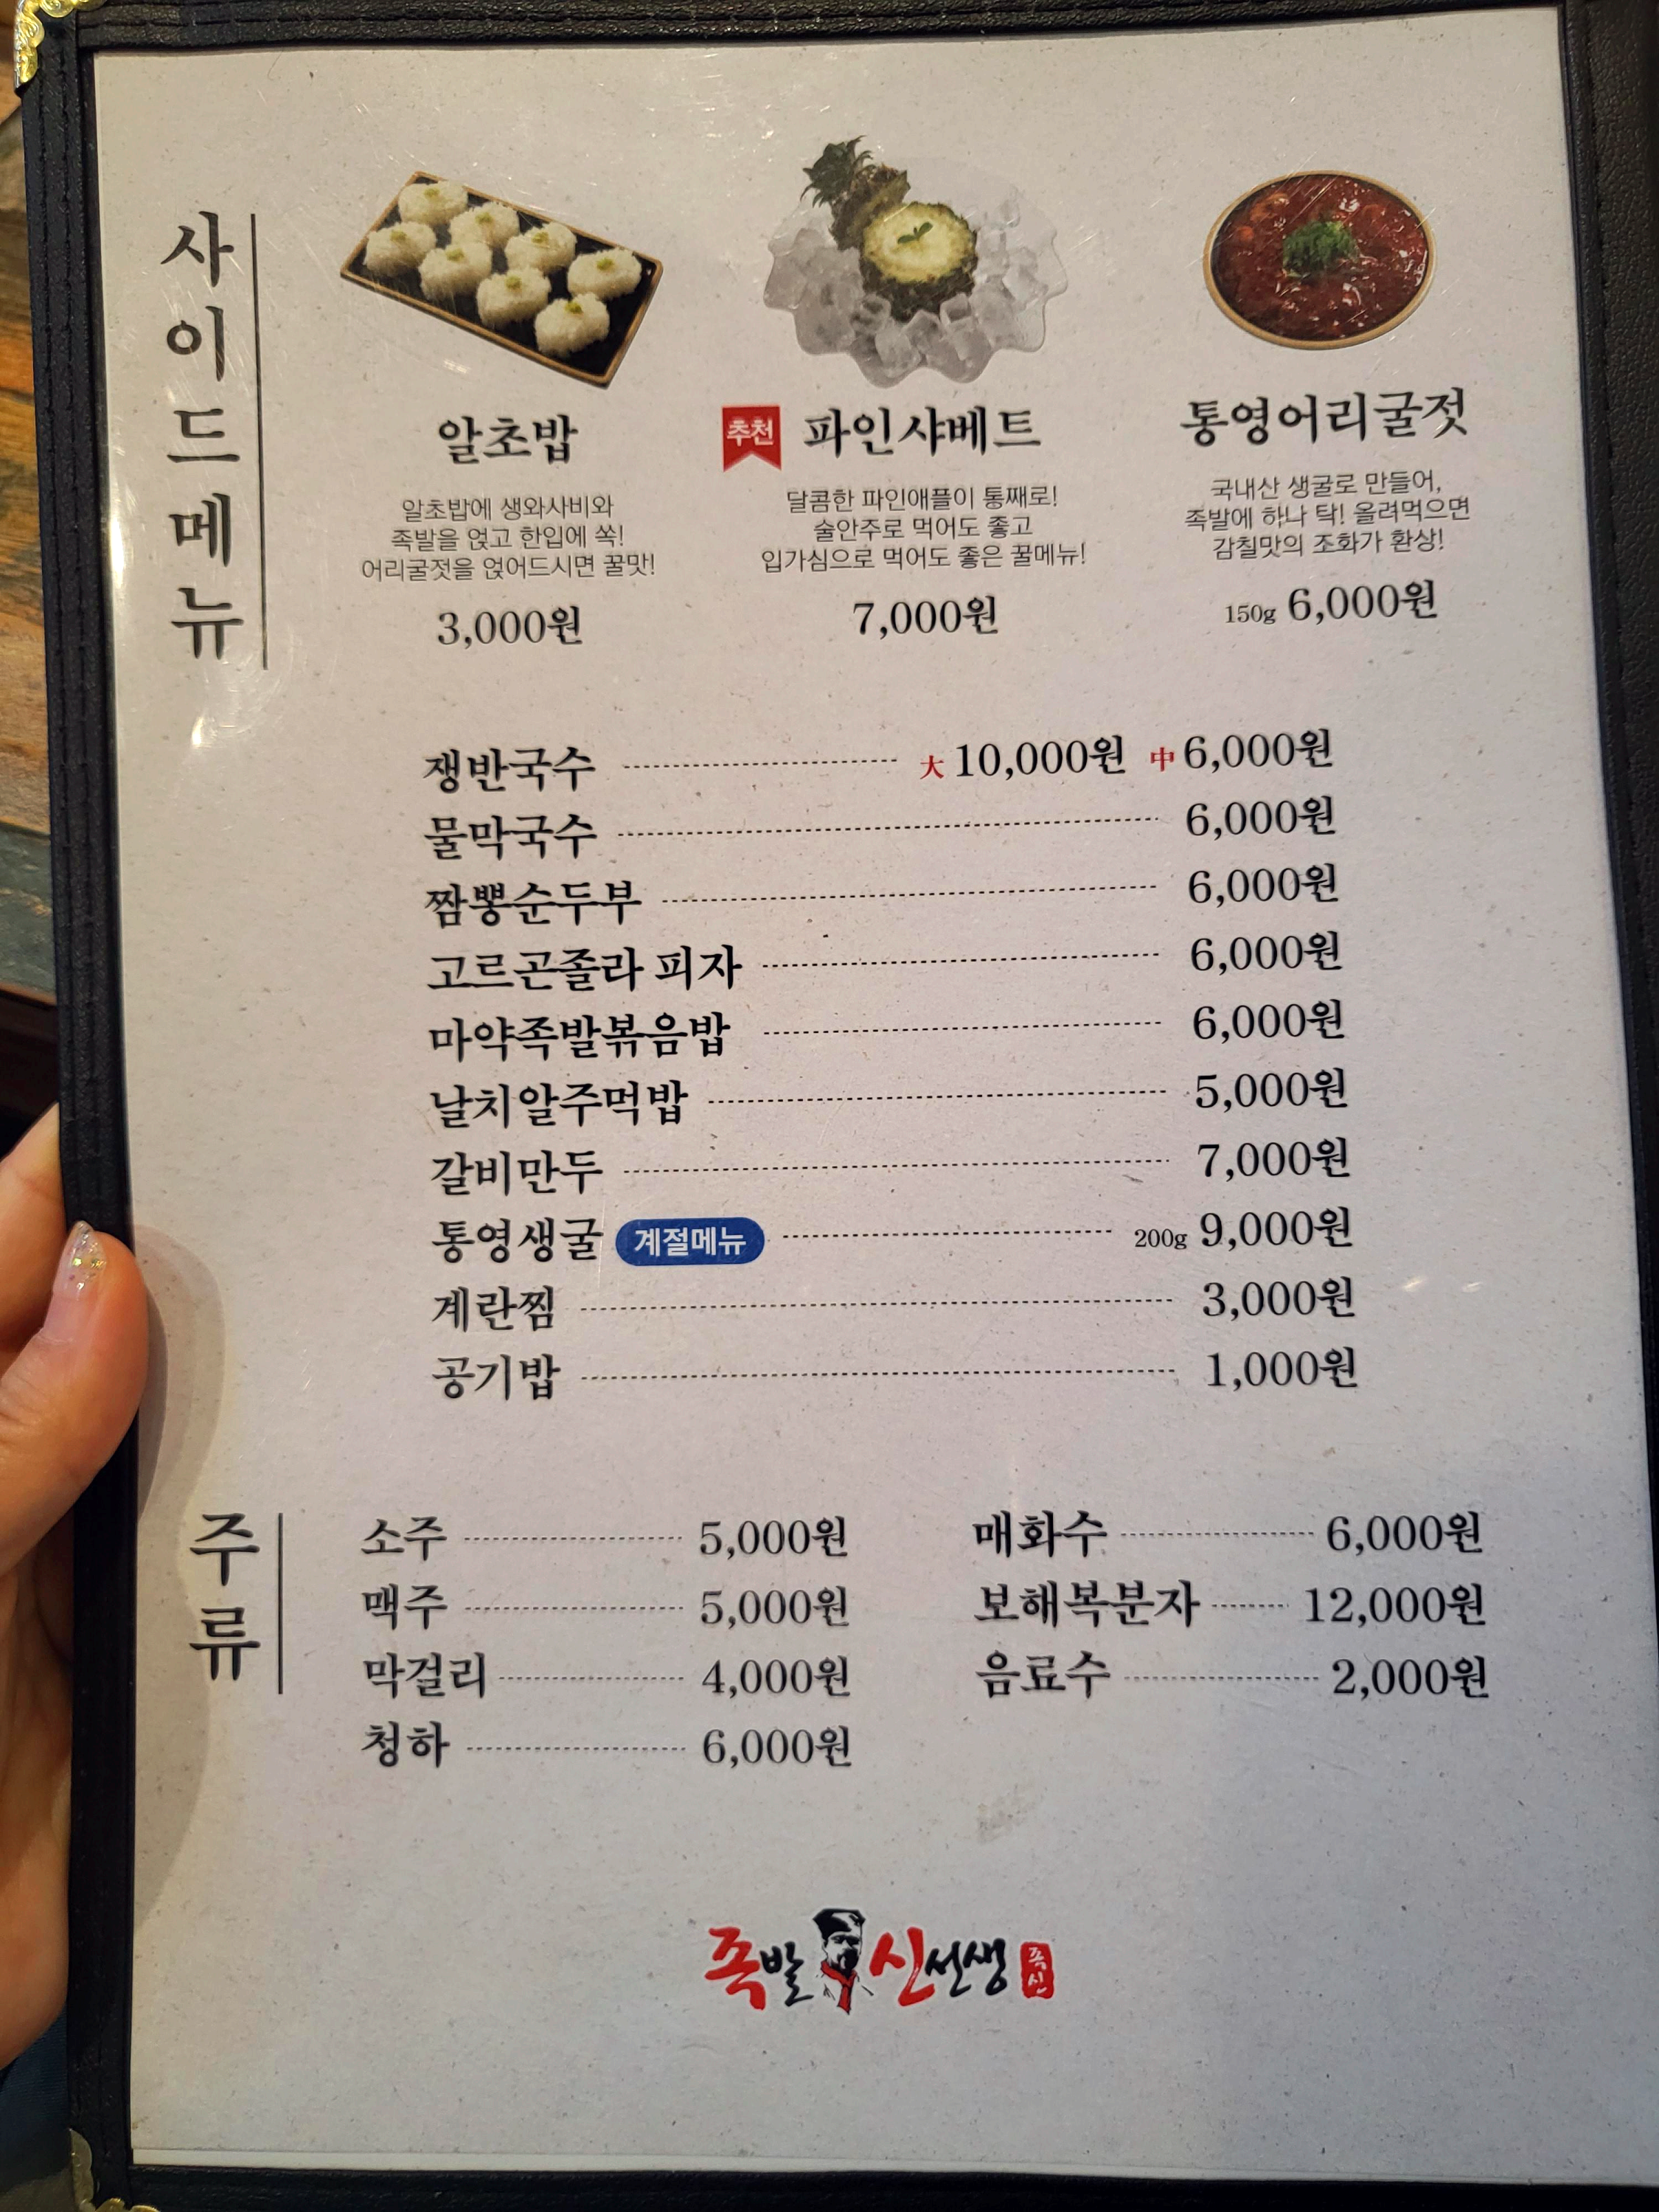 사이드메뉴
알초밥
알초밥에 생와사비와
족발을 얹고 한입에 쏙!
어리굴젓을 얹어드시면 꿀맛!
3,000원
추천 파인샤베트
달콤한 파인애플이 통째로!
술안주로 먹어도 좋고
입가심으로 먹어도 좋은 꿀메뉴!
7,000원
통영어리굴젓
국내산 생굴로 만들어,
족발에 하나 탁! 올려먹으면
감칠맛의 조화가 환상!
150g 6,000원
쟁반국수 大 10,000원 中 6,000원
물막국수 6,000원
짬뽕순두부 6,000원
고르곤졸라 피자 6,000원
마약족발볶음밥 6,000원
날치알주먹밥 5,000원
갈비만두 7,000원
통영생굴 계절메뉴 200g 9,000원
계란찜 3,000원
공기밥 1,000원
주류
소주 5,000원
맥주 5,000원
막걸리 4,000원
청하 6,000원
매화수 6,000원
보해복분자 12,000원
음료수 2,000원
족발신선생 족신